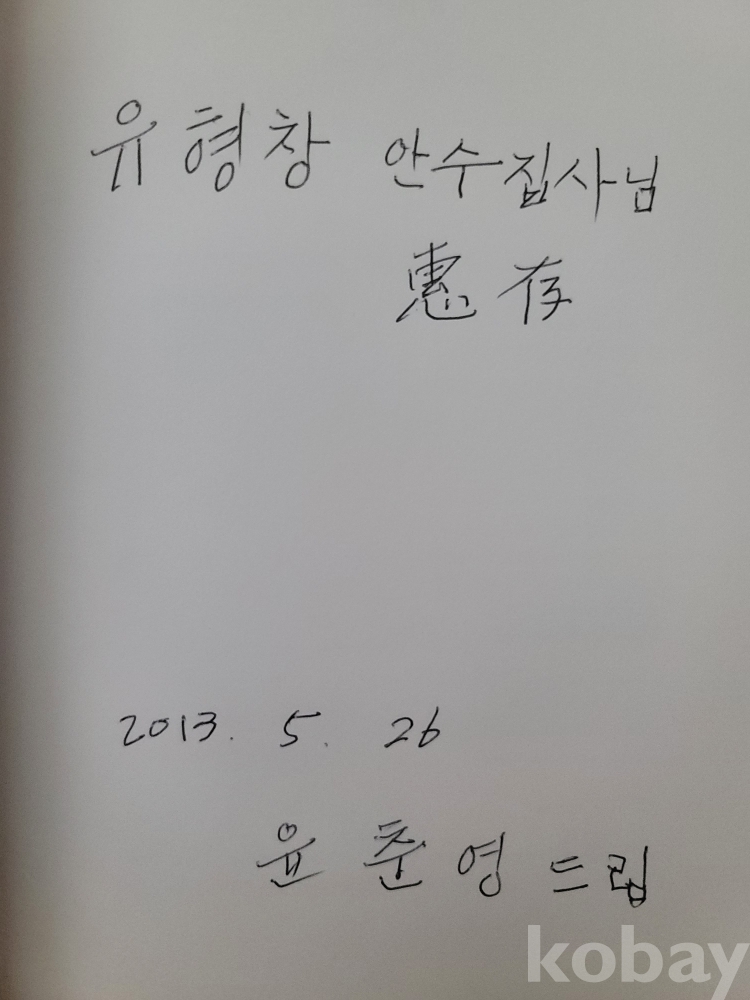 유형창 안수집사님
惠存
2013. 5. 26
윤춘영 드림
kobay